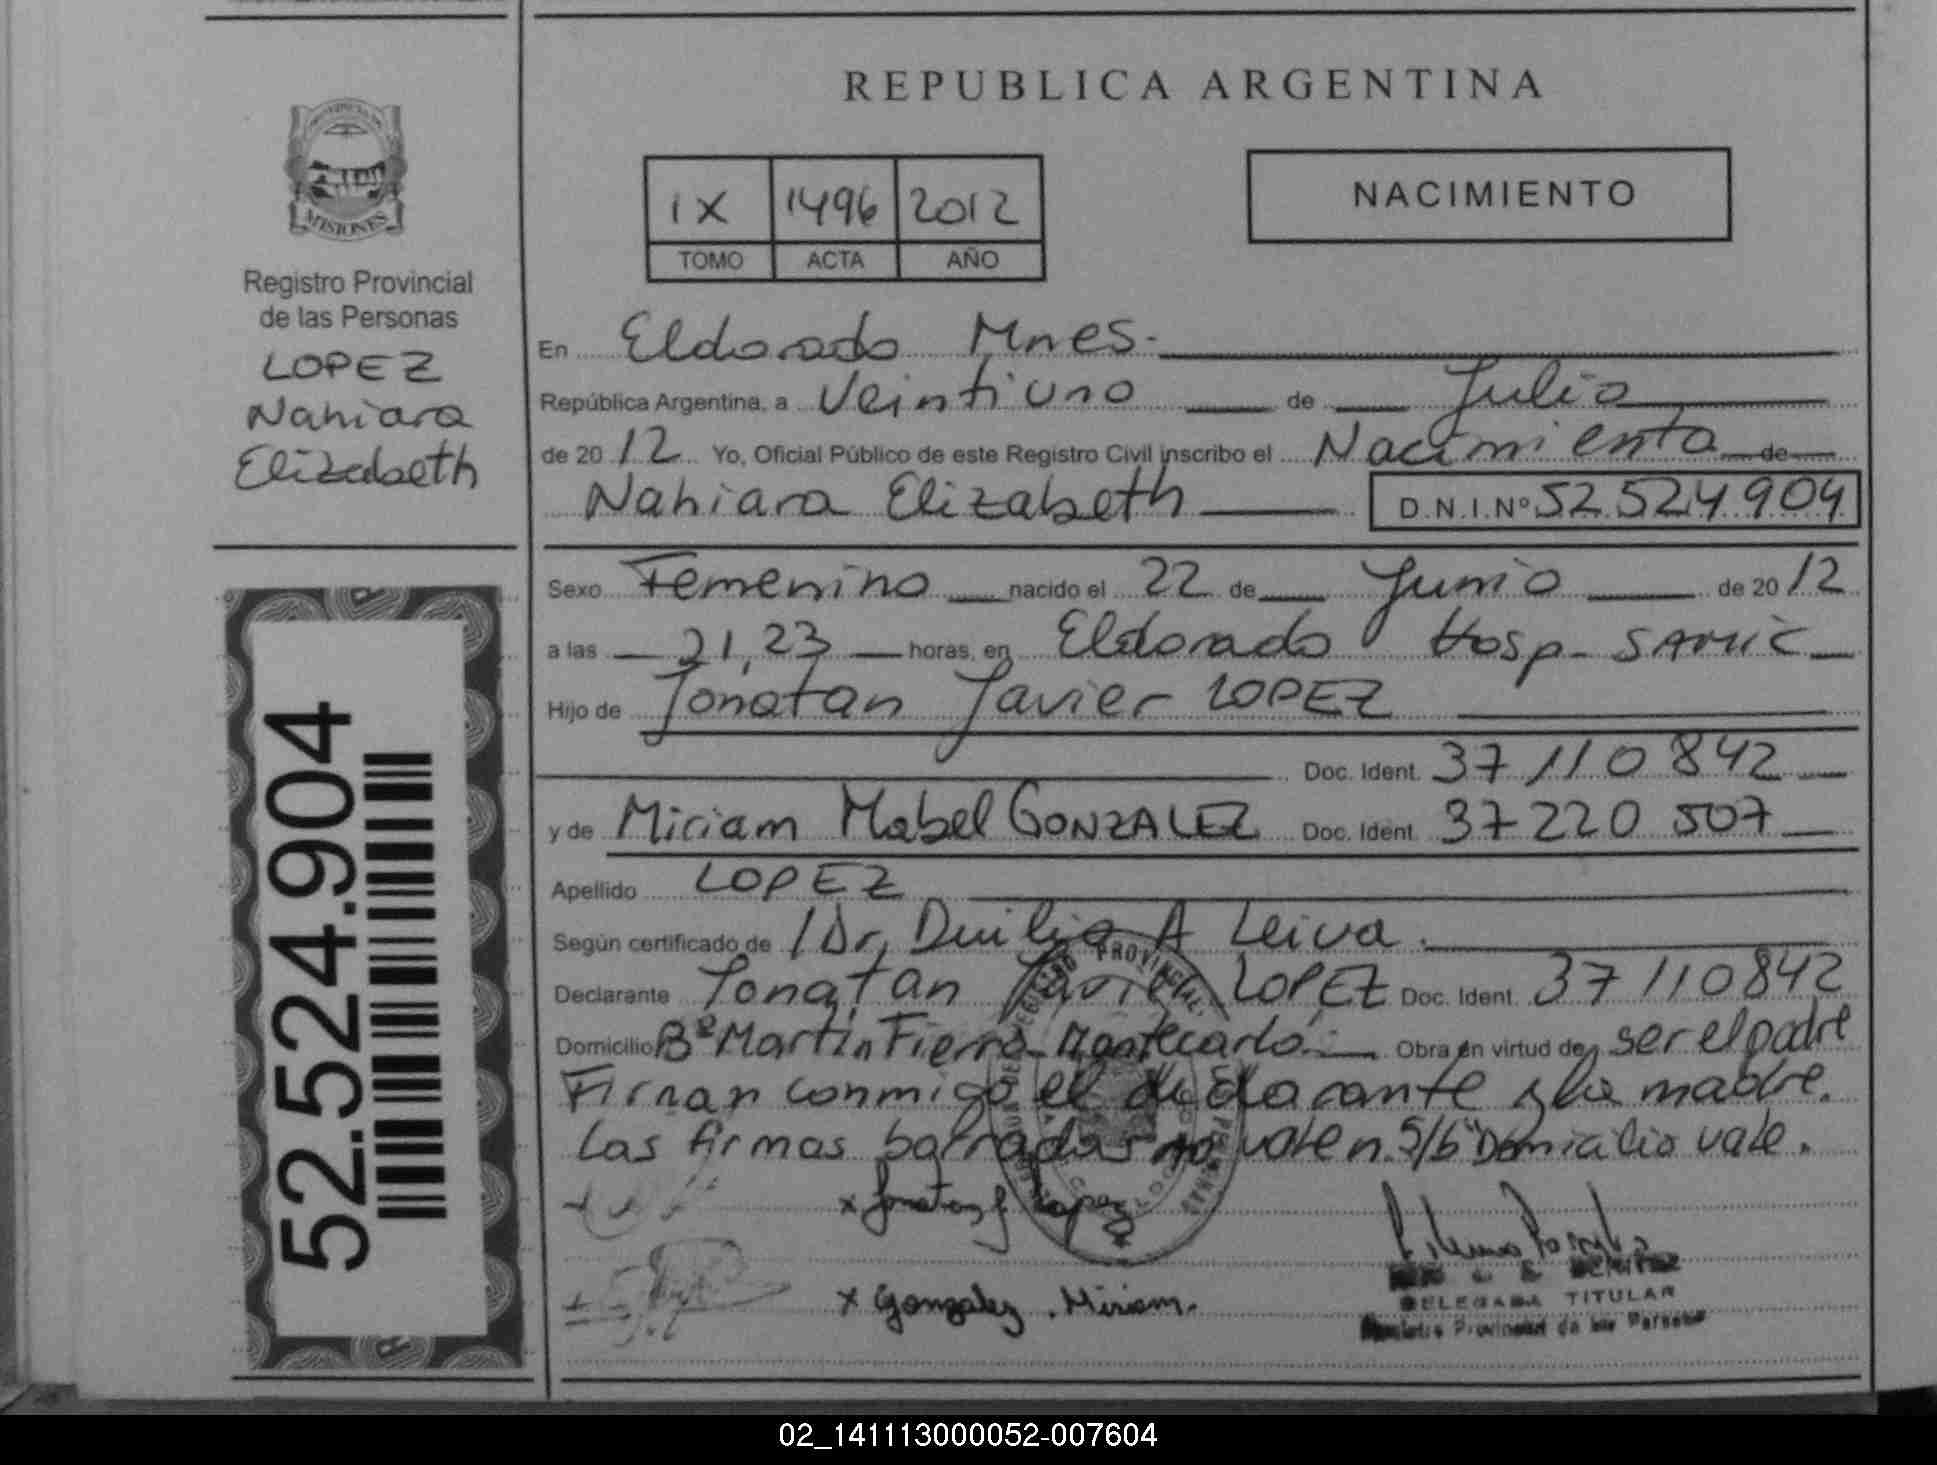 MISIONES
Registro Provincial
de las Personas
LOPEZ
Nahiara
Elizabeth
52.524.904
REPUBLICA ARGENTINA
IX 1496 2012
TOMO ACTA AÑO
NACIMIENTO
En Eldorado Mnes.
República Argentina, a Veintiuno de Julio
de 2012 Yo, Oficial Público de este Registro Civil inscribo el Nacimiento de
Nahiara Elizabeth D.N.I.Nº 52 524 904
Sexo Femenino nacido el 22 de Junio de 2012
a las 21,23 horas, en Eldorado Hosp. SAMIC
Hijo de Jonatan Javier LOPEZ
Doc. Ident. 37 110 842
y de Miriam Mabel GONZALEZ Doc. Ident. 37 220 507
Apellido LOPEZ
Según certificado de Dr, Duilio A Leiva.
Declarante Jonatan Javier LOPEZ Doc. Ident. 37 110842
Domicilio Bº Martín Fierro Montecarlo. Obra en virtud de ser el padre
Firman conmigo el declarante y la madre.
Las firmas borradas no valen. S/b "Domicilio vale.
x Jonatan J Lopez
x Gonzalez. Miriam.
DELEGADA TITULAR
Registro Provincial de las Personas
02_141113000052-007604